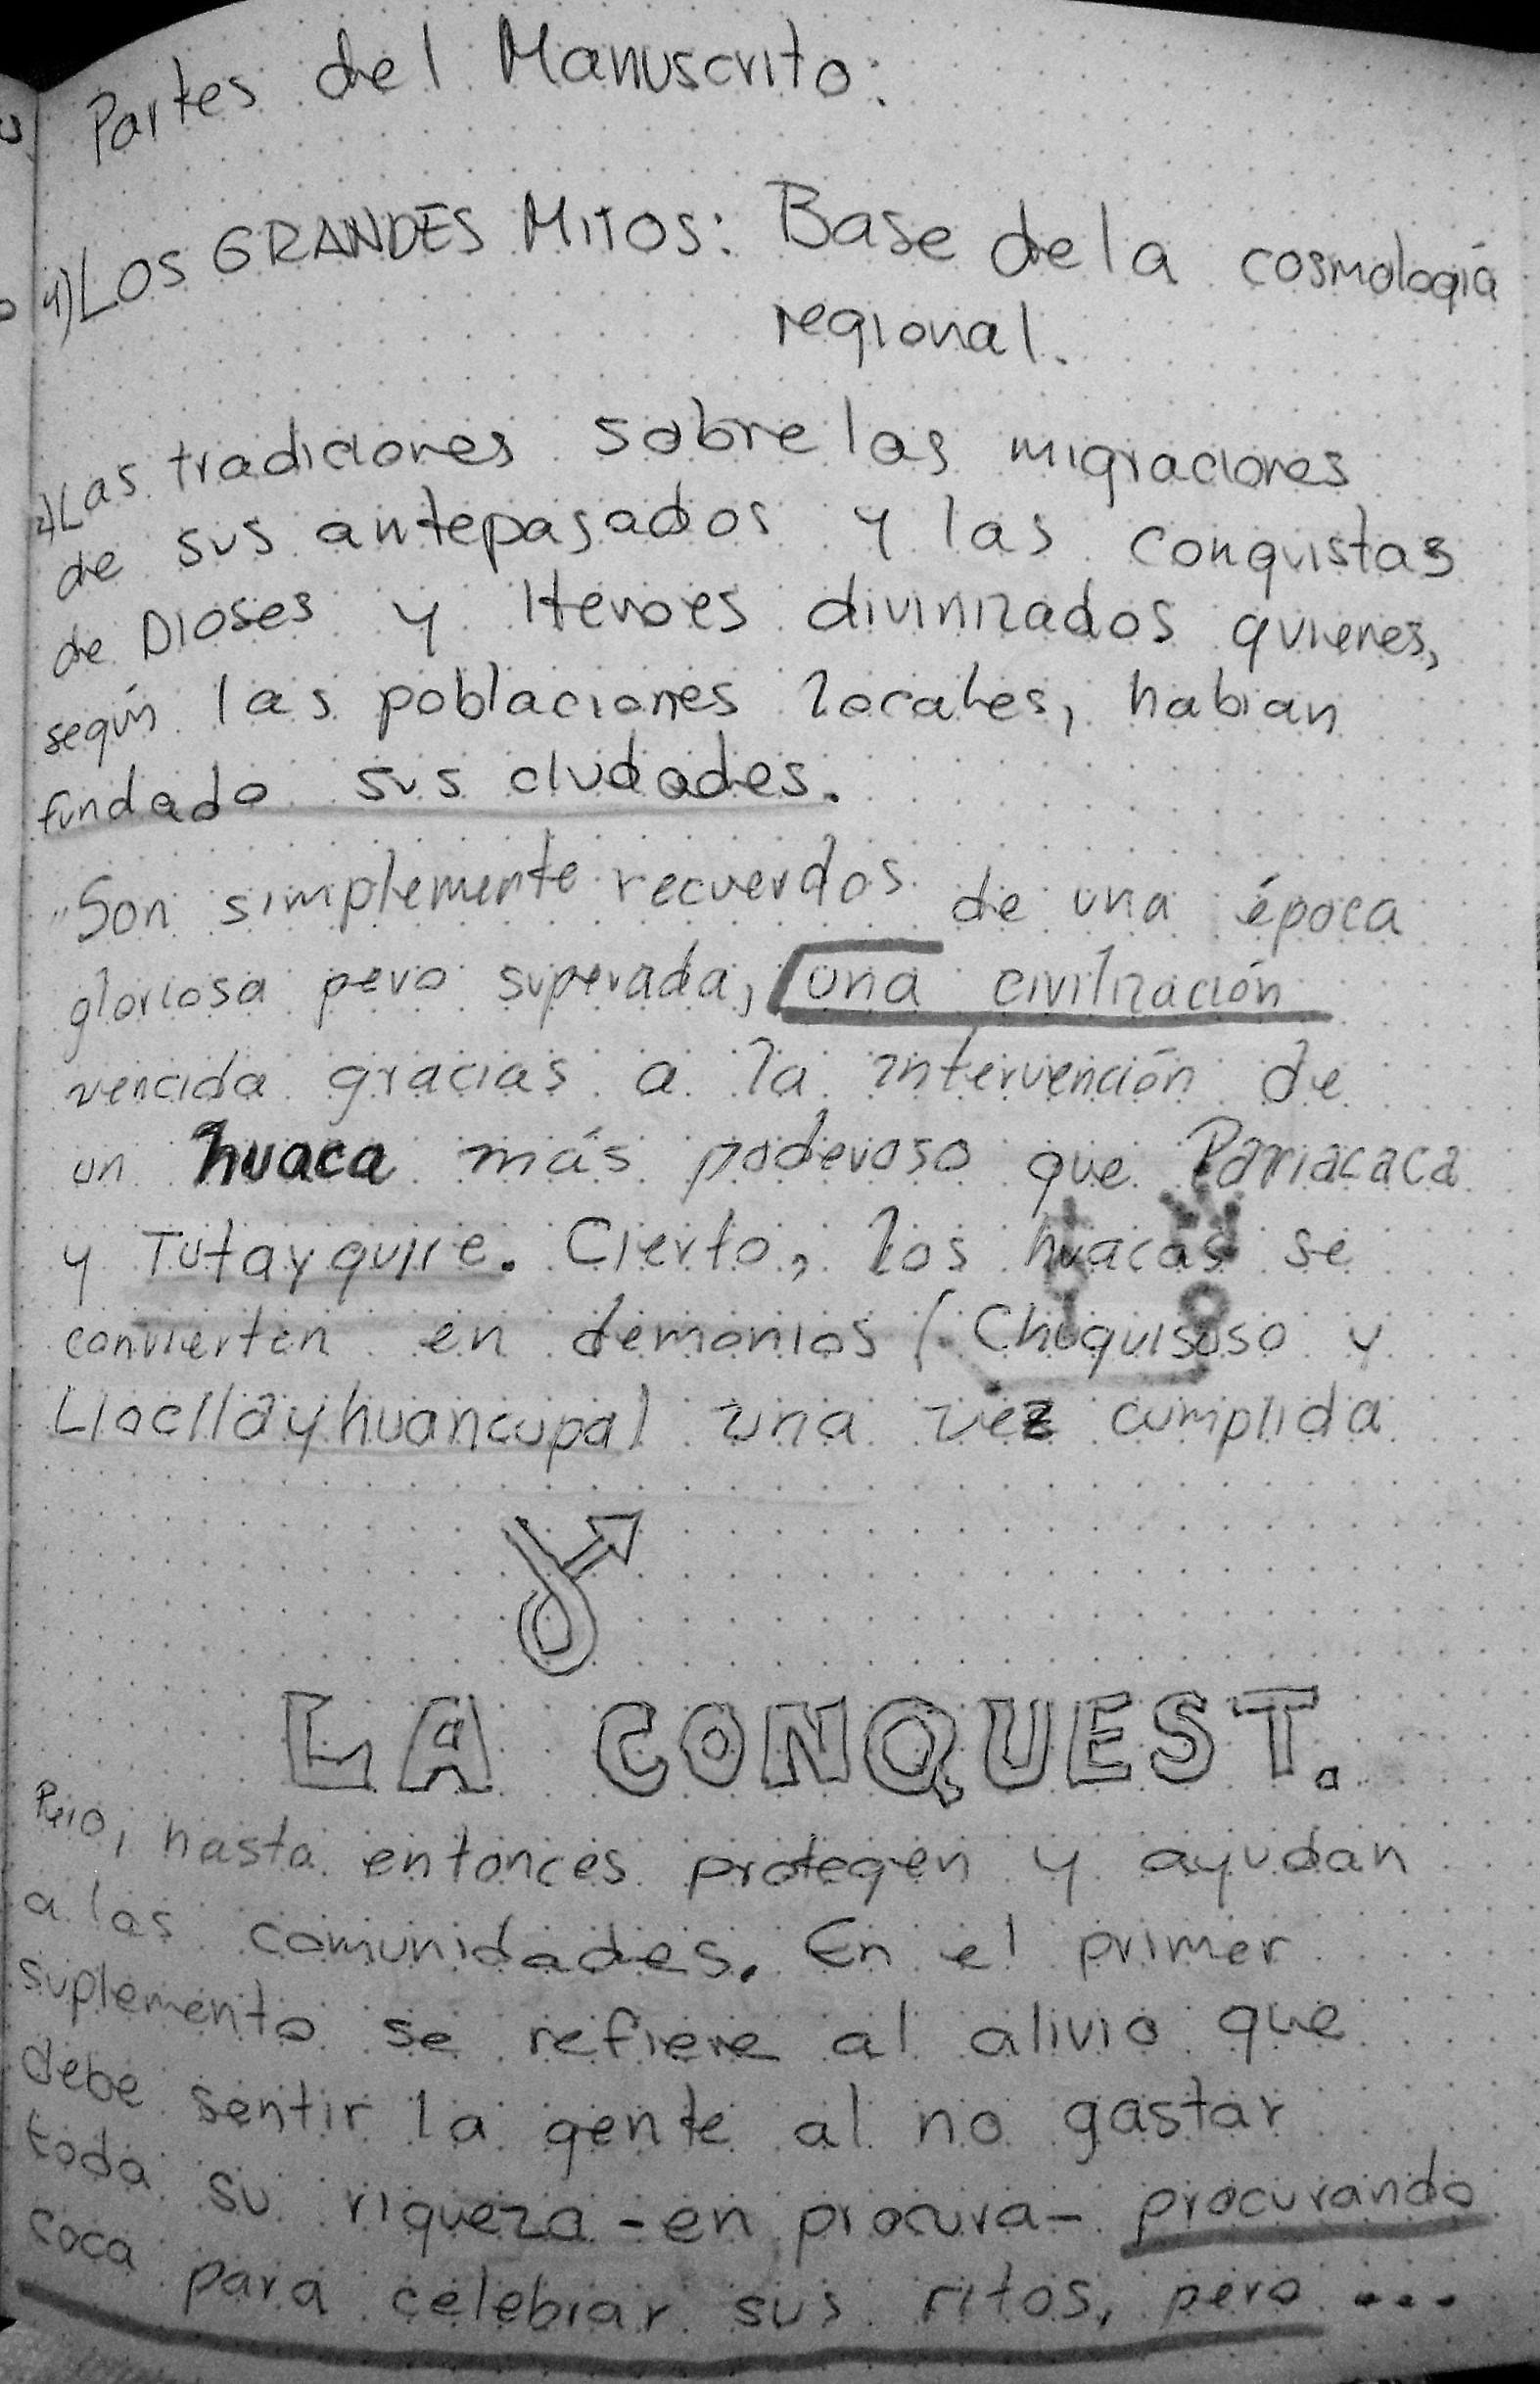 Partes del Manuscrito:
1) LOS GRANDES MITOS: Base de la cosmología
regional.
2) Las tradiciones sobre las migraciones
de sus antepasados y las conquistas
de Dioses y Heroes divinizados quienes,
según las poblaciones locales, habian
fundado sus ciudades.
"Son simplemente recuerdos de una época
gloriosa pero superada, una civilización
vencida gracias a la intervención de
un huaca más poderoso que Pariacaca
y Tutayquire. Cierto, los huacas se
convierten en demonios (Chuquisuso y
Llocllayhuancupa) una vez cumplida
LA CONQUEST.
Pero, hasta entonces protegen y ayudan
a las comunidades. En el primer
suplemento se refiere al alivio que
debe sentir la gente al no gastar
toda su riqueza - en procura - procurando
coca para celebrar sus ritos, pero ...